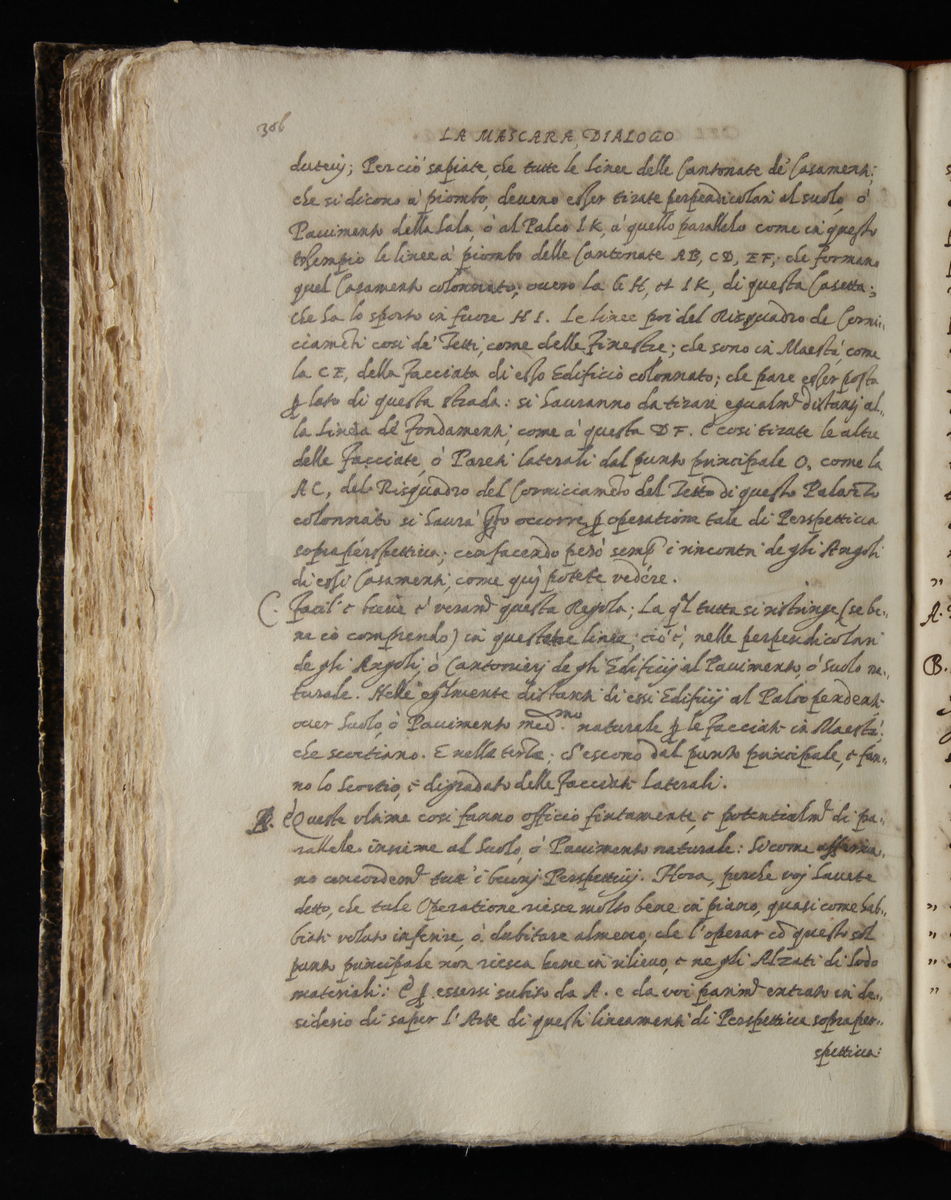 306
LA MASCARA, DIALOGO
dutevj; Perciò sapiate, che tutte le linee delle Cantonate de' Casamenti;
che si dicono à piombo, deveno esser tirate perpendicolari al suolo, ò
Pavimento della Sala, ò al Palco IK, à quello parallelo come in questo
Essempio le linee à piombo delle Cantonate AB, CD, EF; che formano
quel Casamento colonnato; overo la GH, et IK, di questa Casetta;
che hà lo sporto in fuore HI. Le linee poi del Risquadro de Corni:
ciamēti così de' Tetti, come delle Finestre; che sono in Maestà, come
la CE, della Facciata di esso Edificiò colonnato; che pare esser posta
ꝑ lato di questa strada: si hauranno da tirare egualm.te distanti al:
la Linea de' fondamenti; come à questa DF. E' così tirate le altre
delle Facciate, ò Pareti laterali dal punto principale O, come la
AC, del Risquadro del Corniciamēto del Tetto di questo Palazzo
colonnato si haurà qto occorre ꝑ operatione tale di Perspettiva
sopraperspettiva; confacendo però semp i rincontri de gli Angoli
di essi Casamenti, come quj potete vedere.
C. Facil' e breve è veram.te questa Regola; La q.l tutta si ristringe (se be:
ne ciò comprendo) in queste tre linee; cioè, nelle perpendicolari
de gli Angoli, ò Cantonierj de gli Edificij al Pavimento, ò suolo na:
turale. Nelle eg.lmente distanti di essi Edificij al Palco pendente
over Suolo, ò Pavimento med.mo naturale ꝑ le facciate in Maestà:
che scortiano. E nelle terze; ch'escono dal punto principale, e fan:
no lo Scortio, e digradato delle Facciate laterali.
B. E' Queste ultime così fanno officio fintamente, e potentialm.te di pa:
rallele insieme al Suolo, ò Pavimento naturale: Sì come afferma
no concordem.te tutt' i buonj Perspettivj. Hora, perche voj havete
detto, che tale Operatione riesce molto bene in piano, quasi come hab:
biate voluto inferire, ò dubitare almeno, che l'operar cō questo sol
punto principale non riesca bene in rilievo, e ne gli Alzati di sodo
materiali: E' ꝑ essersi subito da A. e da voi parim.te entrato in de:
siderio di saper l'Arte di questi lineamenti di Perspettiva sopraper:
spettiva: